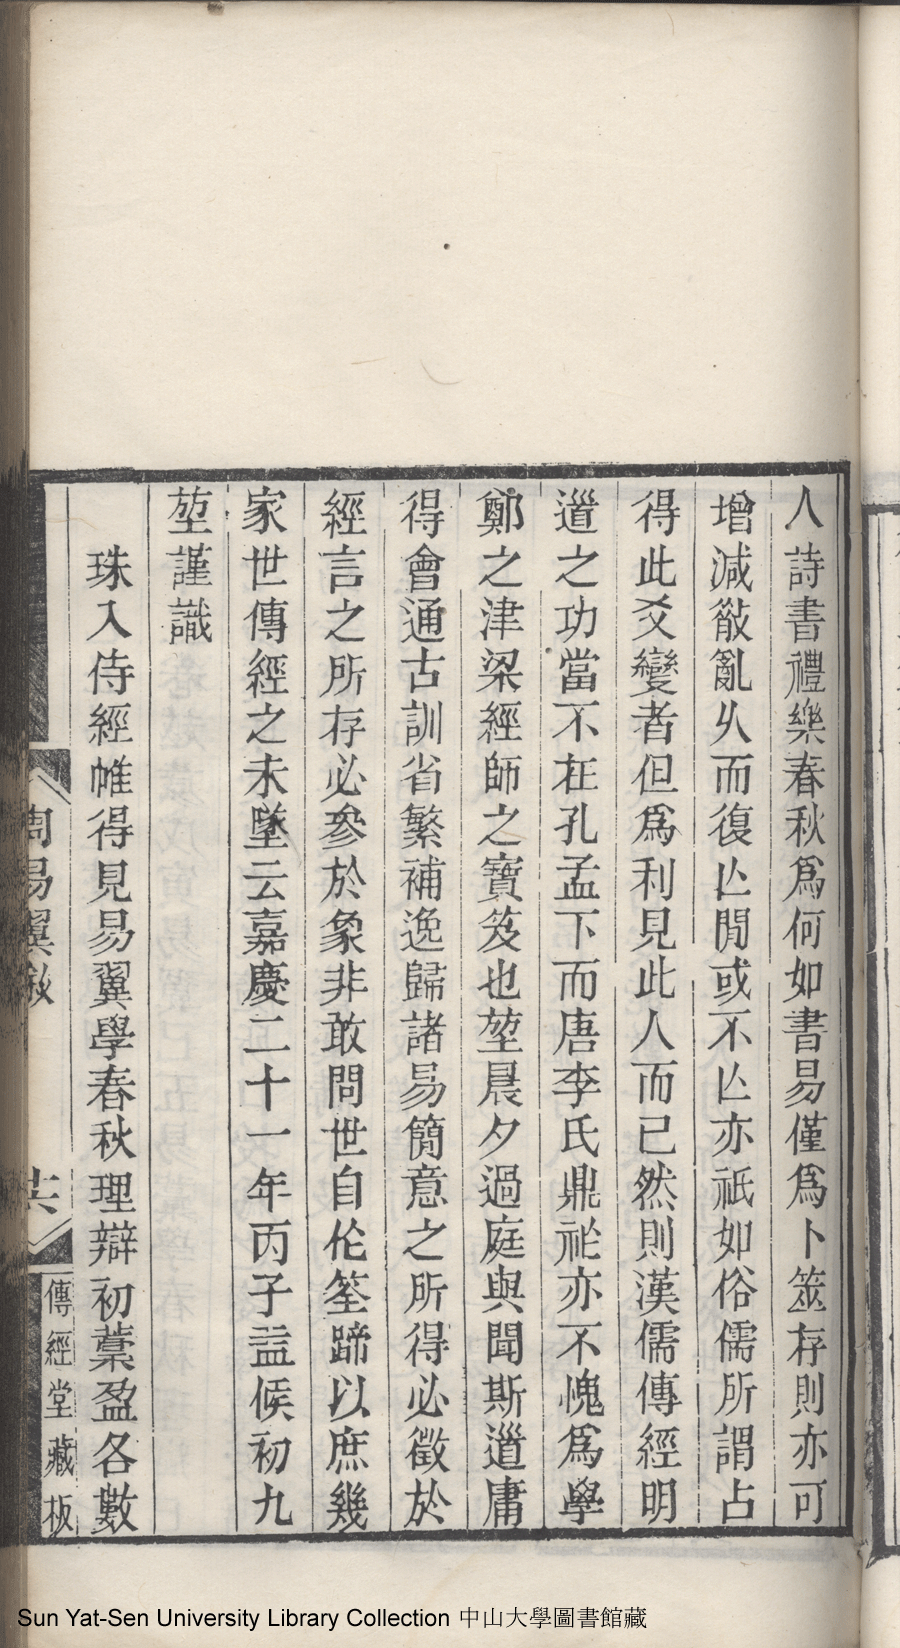 人詩書禮樂春秋爲何如書易僅爲卜筮存則亦可
增減散亂乆而復亾閒或不亾亦祇如俗儒所謂占
得此爻變者但爲利見此人而已然則漢儒傳經明
道之功當不在孔孟下而唐李氏鼎祚亦不愧爲學
鄭之津梁經師之寶笈也堃晨夕過庭與聞斯道庸
得會通古訓省繁補逸歸諸易簡意之所得必徵於
經言之所存必參於象非敢問世自佗筌蹄以庶幾
家世傳經之未墜云嘉慶二十一年丙子益候初九
堃謹識
珠入侍經帷得見易翼學春秋理辯初藁盈各數
周易翼
傳經堂藏板
Sun Yat-Sen University Library Collection 中山大學圖書館藏